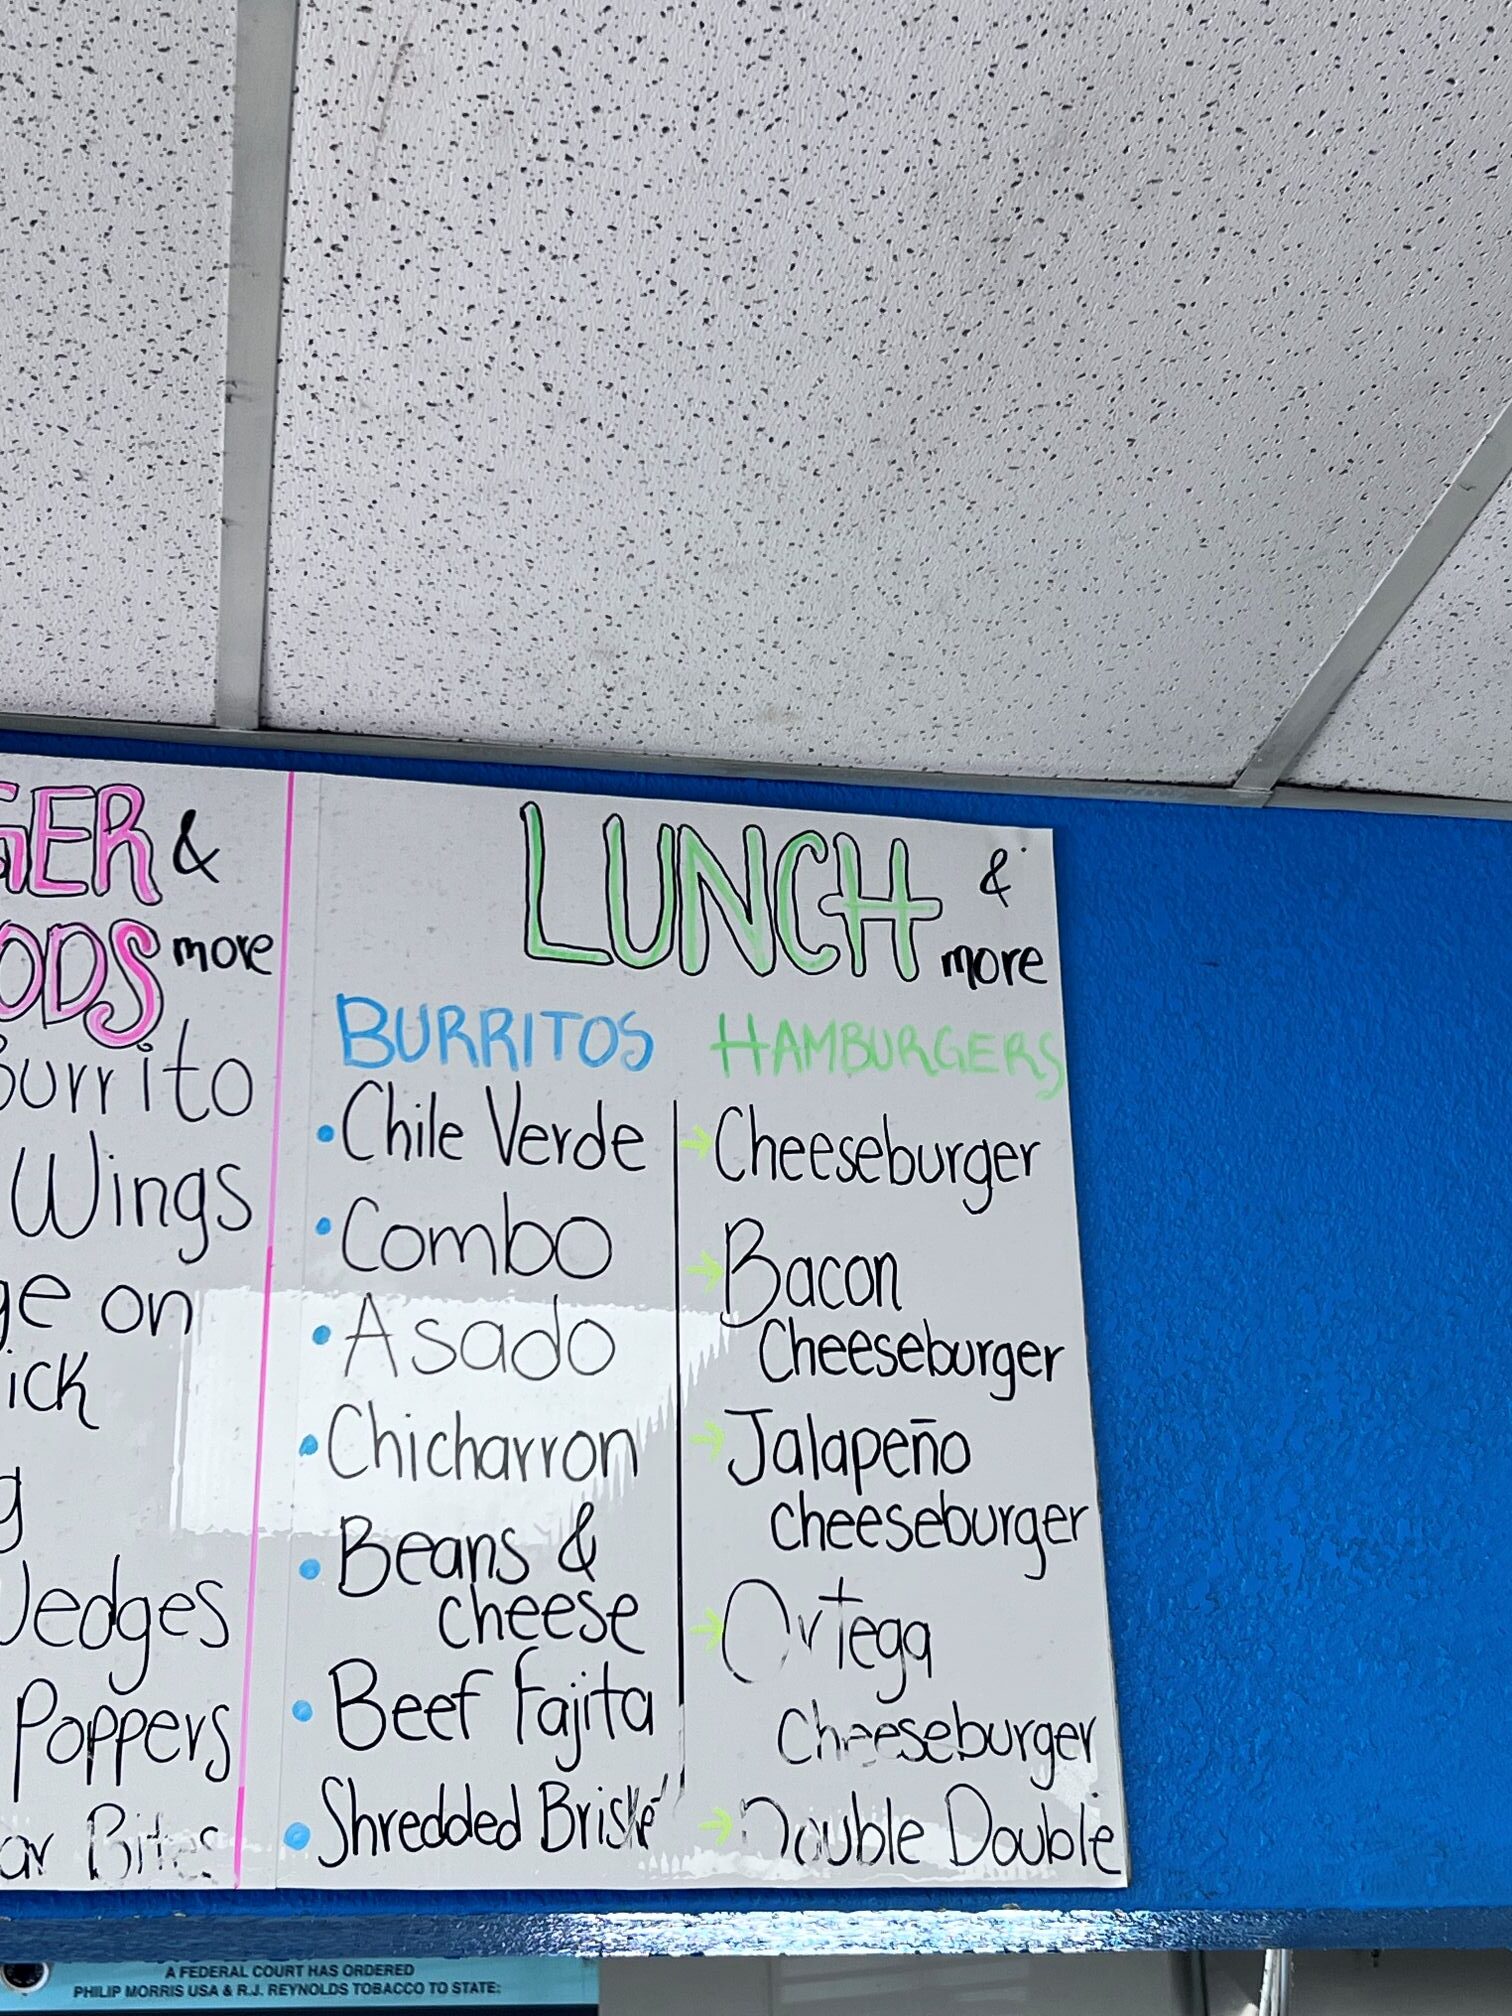 GER &
ODS more
Burrito
Wings
ge on
ick
g
edges
Poppers
ar Bites
LUNCH &
more
BURRITOS
• Chile Verde
• Combo
• Asado
• Chicharron
• Beans &
cheese
• Beef Fajita
• Shredded Briske
HAMBURGERS
→ Cheeseburger
→ Bacon
Cheeseburger
→ Jalapeño
cheeseburger
→ Ortega
Cheeseburger
→ Double Double
A FEDERAL COURT HAS ORDERED
PHILIP MORRIS USA & R.J. REYNOLDS TOBACCO TO STATE: